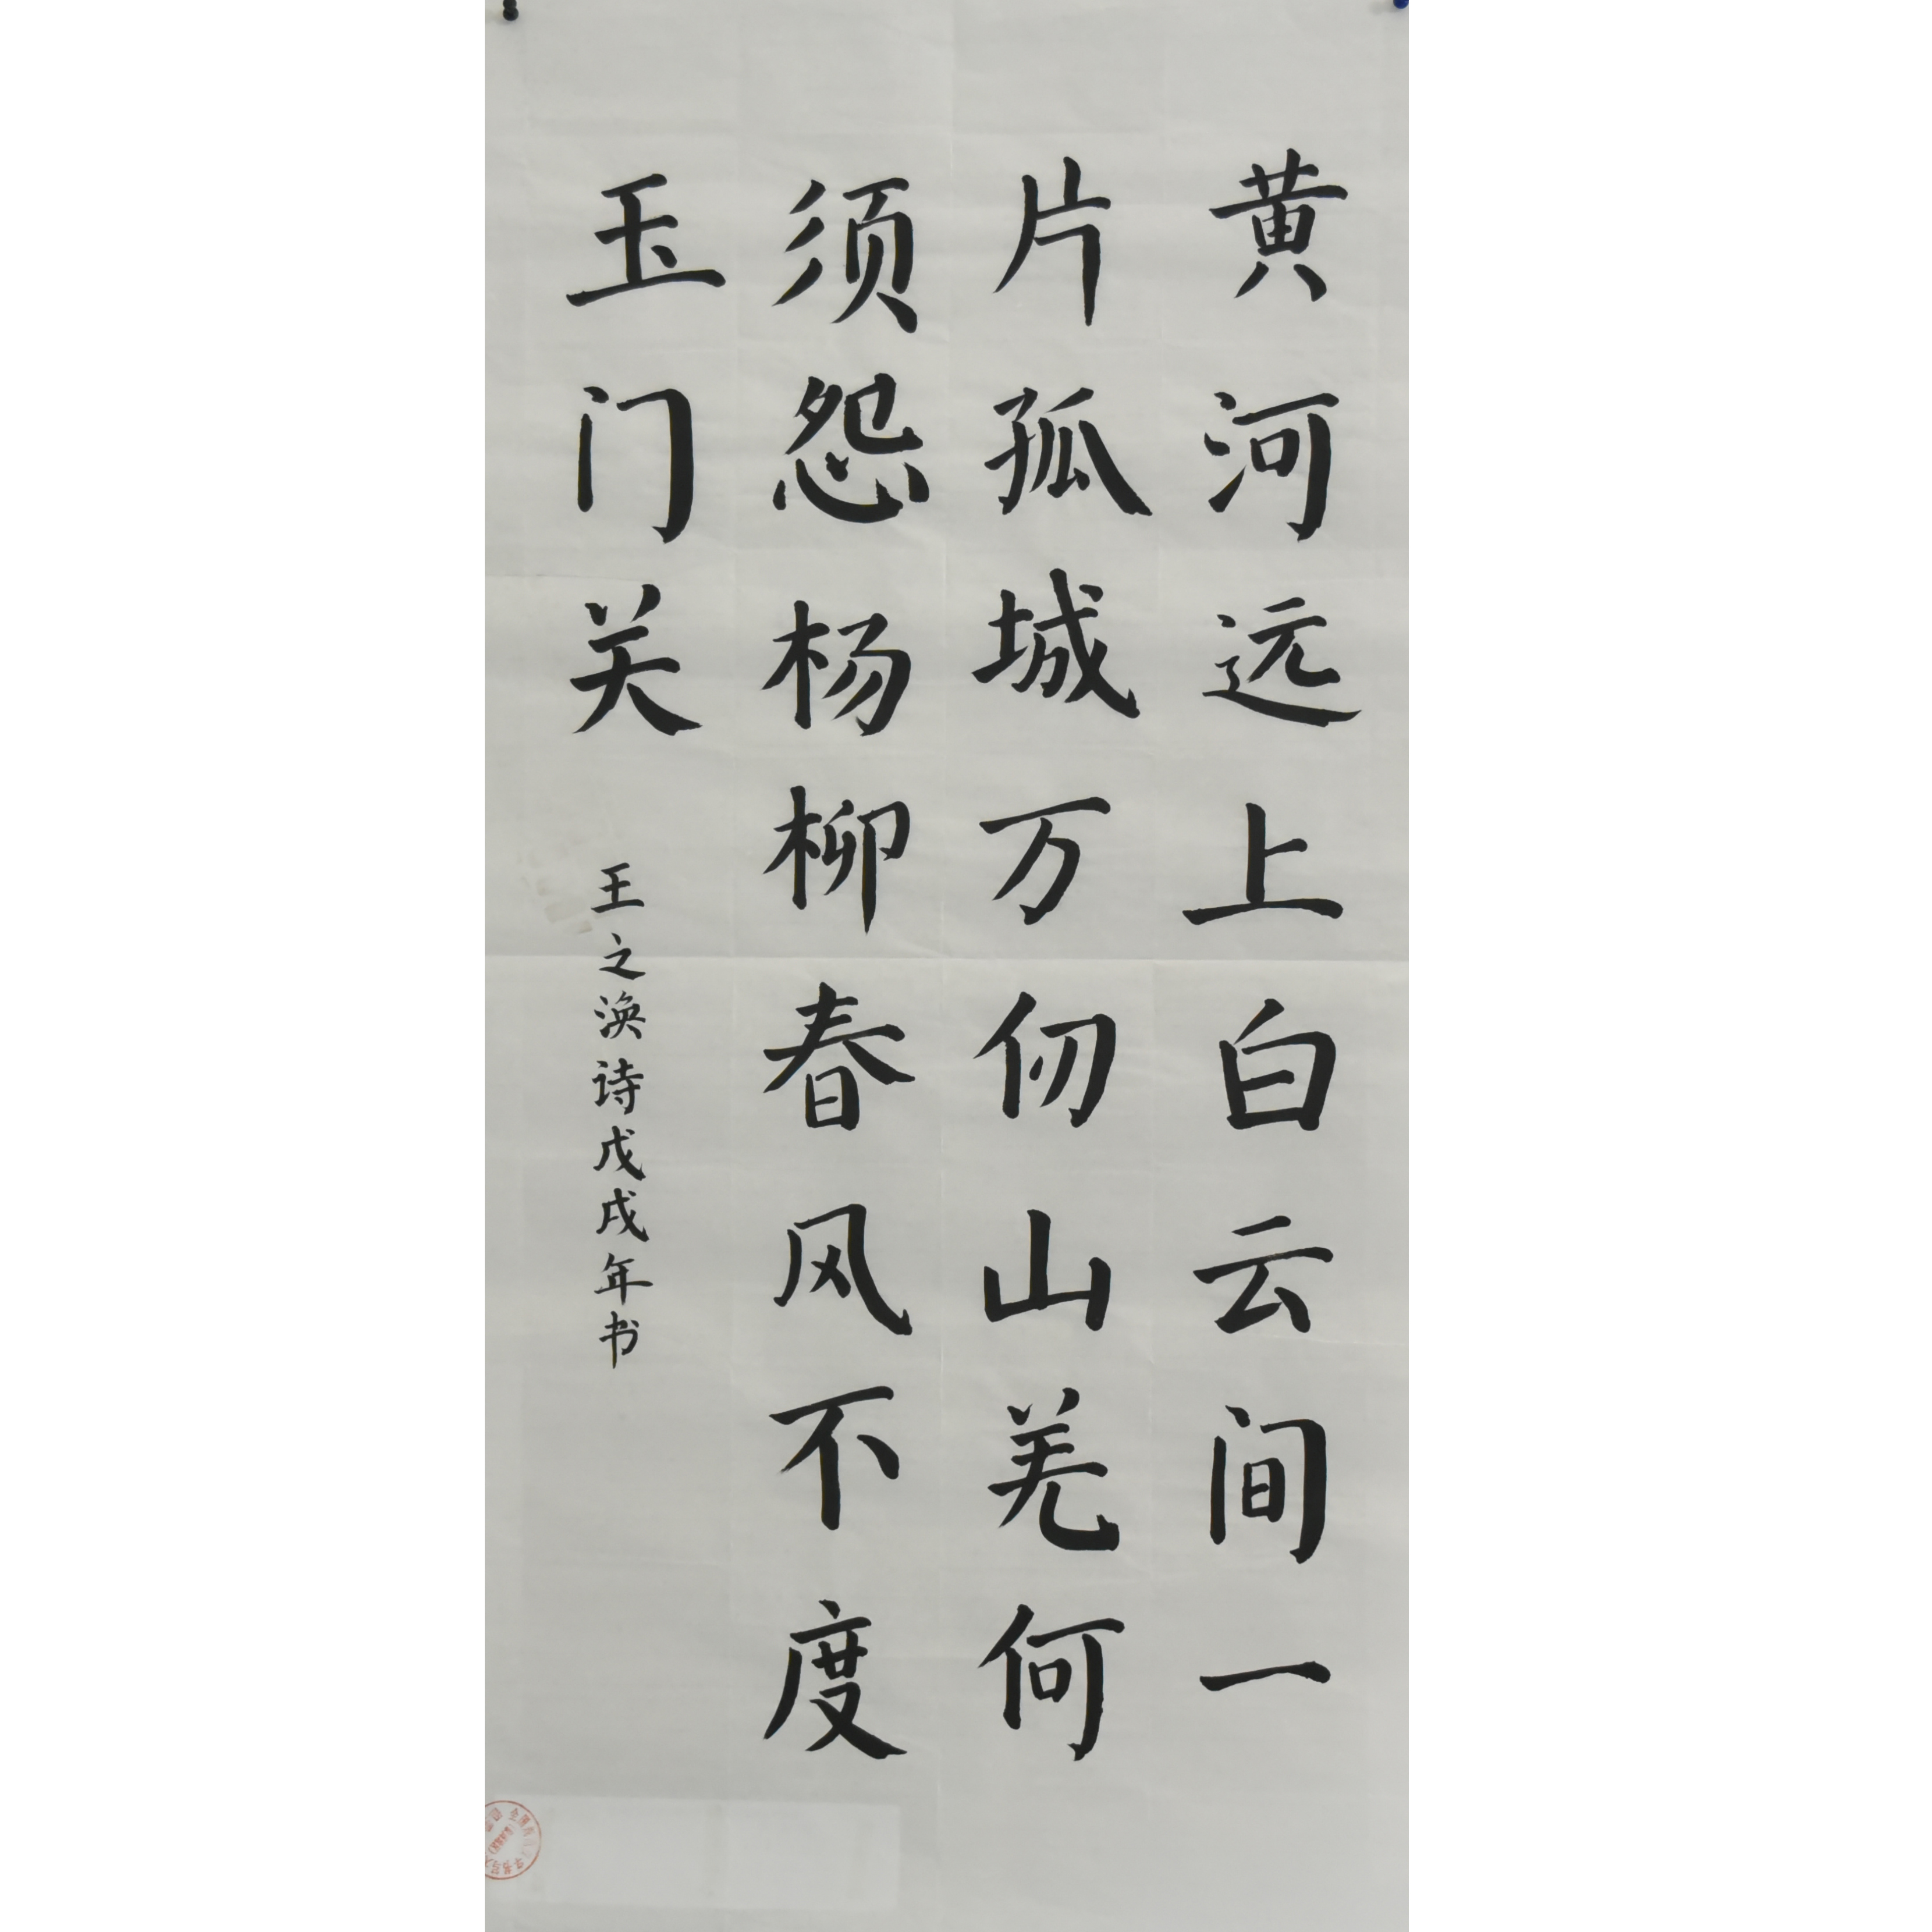 黄河远上白云间一
片孤城万仞山羌何
须怨杨柳春风不度
玉门关
王之涣诗戊戌年书